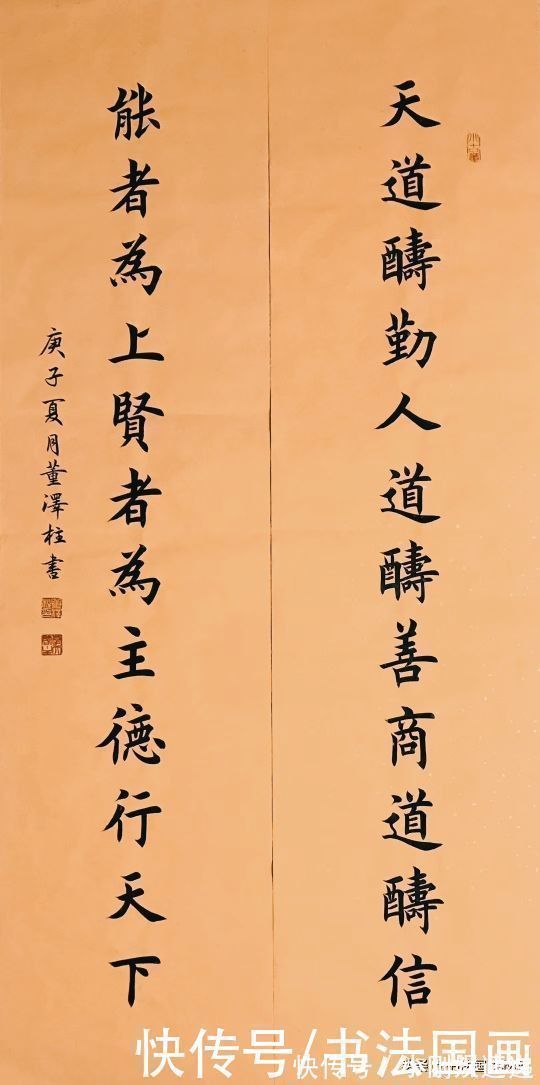 天道醻勤人道醻善商道醻信
能者為上賢者為主德行天下
庚子夏月董澤柱書
快传号/书法国画